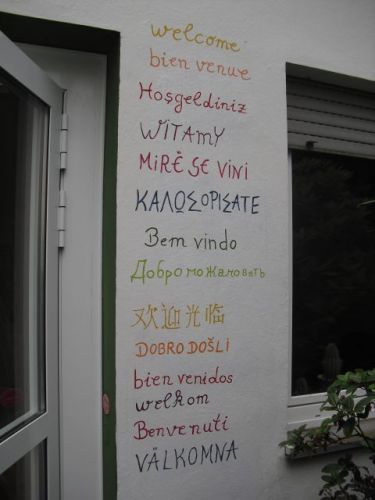 welcome
bien venue
Hoşgeldiniz
WITAMY
MIRË SE VINI
ΚΑΛΩΣΟΡΙΣΑΤΕ
Bem vindo
Добро пожаловать
欢迎光临
DOBRO DOŠLI
bien venidos
welkom
Benvenuti
VÄLKOMNA